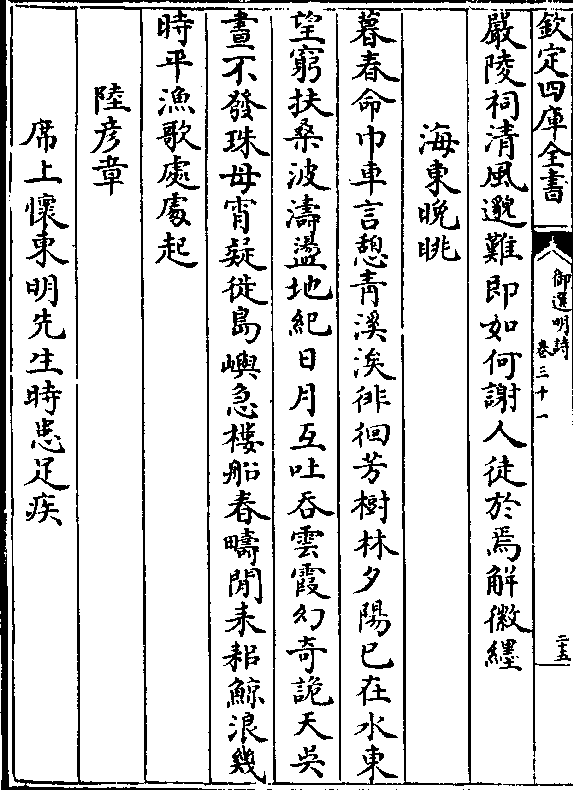 欽定四庫全書
御選明詩
卷三十一
二十五
嚴陵祠清風邈難即如何謝人徒於焉解徽纆
海東晚眺
暮春命巾車言憩青溪涘徘徊芳樹林夕陽已在水東
望窮扶桑波濤盪地紀日月互吐吞雲霞幻奇詭天吳
晝不發珠母宵疑徙島嶼急樓船春疇閒耒耜鯨浪幾
時平漁歌處處起
陸彦章
席上懷東明先生時患足疾